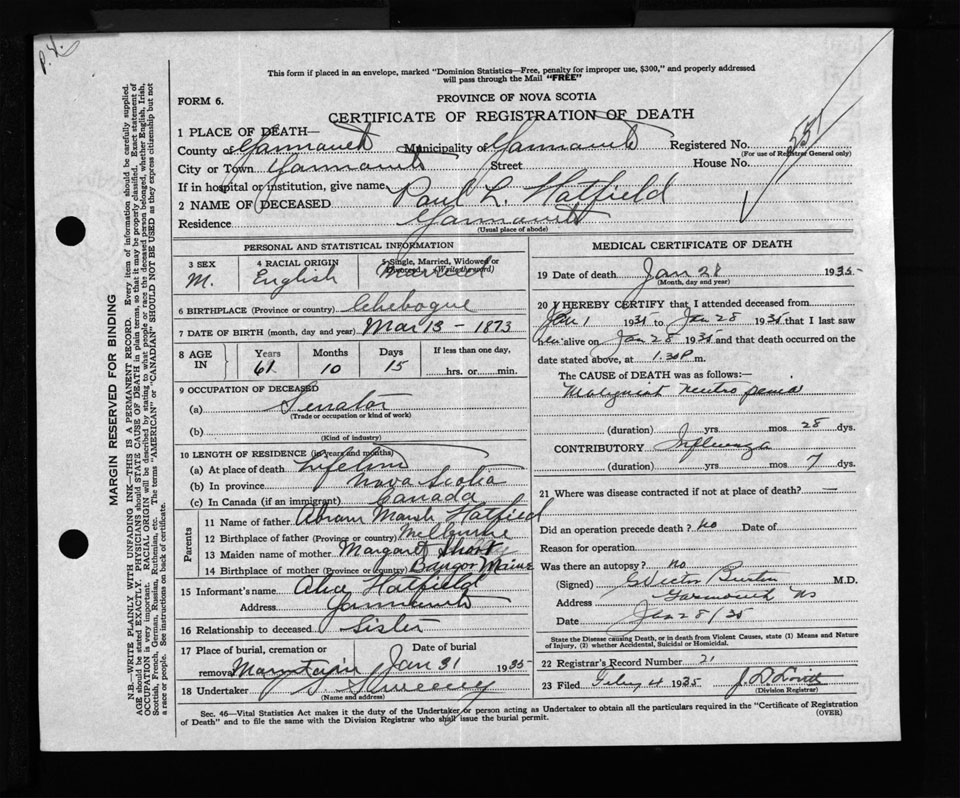 P. Y.
This form if placed in an envelope, marked "Dominion Statistics—Free, penalty for improper use, $300," and properly addressed
will pass through the Mail "FREE"
FORM 6.
PROVINCE OF NOVA SCOTIA
CERTIFICATE OF REGISTRATION OF DEATH
551
1 PLACE OF DEATH—
County of Yarmouth Municipality of Yarmouth Registered No.
(For use of Registrar General only)
City or Town Yarmouth Street House No.
If in hospital or institution, give name
2 NAME OF DECEASED Paul L. Hatfield
Residence Yarmouth
(Usual place of abode)
PERSONAL AND STATISTICAL INFORMATION
3 SEX 4 RACIAL ORIGIN 5 Single, Married, Widowed or
Divorced (Write the word)
M. English Married
6 BIRTHPLACE (Province or country) Chebogue
7 DATE OF BIRTH (month, day and year) Mar 13 - 1873
8 AGE IN Years Months Days If less than one day,
61 10 15 hrs. or min.
9 OCCUPATION OF DECEASED
(a) Senator
(Trade or occupation or kind of work)
(b)
(Kind of industry)
10 LENGTH OF RESIDENCE (in years and months)
(a) At place of death Lifetime
(b) In province Nova Scotia
(c) In Canada (if an immigrant) Canada
Parents
11 Name of father Abram Marsh Hatfield
12 Birthplace of father (Province or country) Melbourne
13 Maiden name of mother Margaret
14 Birthplace of mother (Province or country) Bangor Maine
15 Informant's name Hatfield
Address Yarmouth
16 Relationship to deceased Sister
17 Place of burial, cremation or Date of burial
removal Mountain Jan 31 1935
18 Undertaker Sweeney
(Name and address)
MEDICAL CERTIFICATE OF DEATH
19 Date of death Jan 28 1935
(Month, day and year)
20 I HEREBY CERTIFY that I attended deceased from
Jan 1 1935 to Jan 28 1935 that I last saw
him alive on Jan 28 1935 and that death occurred on the
date stated above, at 1.30 P m.
The CAUSE of DEATH was as follows:—
Malignant Neutropenia
(duration) yrs mos 28 dys.
CONTRIBUTORY Influenza
(duration) yrs mos 7 dys.
21 Where was disease contracted if not at place of death?
Did an operation precede death? No Date of
Reason for operation
Was there an autopsy? No
(Signed) Burton M.D.
Address Yarmouth NS
Date Jan 28/35
State the Disease causing Death, or in death from Violent Causes, state (1) Means and Nature
of Injury, (2) whether Accidental, Suicidal or Homicidal.
22 Registrar's Record Number 21
23 Filed Feby 4 1935
(Division Registrar)
Sec. 46—Vital Statistics Act makes it the duty of the Undertaker or person acting as Undertaker to obtain all the particulars required in the "Certificate of Registration
of Death" and to file the same with the Division Registrar who shall issue the burial permit.
(OVER)
MARGIN RESERVED FOR BINDING
N.B.—WRITE PLAINLY WITH UNFADING INK—THIS IS A PERMANENT RECORD. Every item of information should be carefully supplied.
AGE should be stated EXACTLY. PHYSICIANS should STATE CAUSE OF DEATH in plain terms, so that it may be properly classified. Exact statement of
OCCUPATION is very important. RACIAL ORIGIN will be described by stating to what people or race the deceased person belonged, whether English, Irish,
Scottish, French, German, Russian, Ruthenian, etc. The terms "AMERICAN" or "CANADIAN" SHOULD NOT BE USED as they express citizenship but not
a race or people. See instructions on back of certificate.